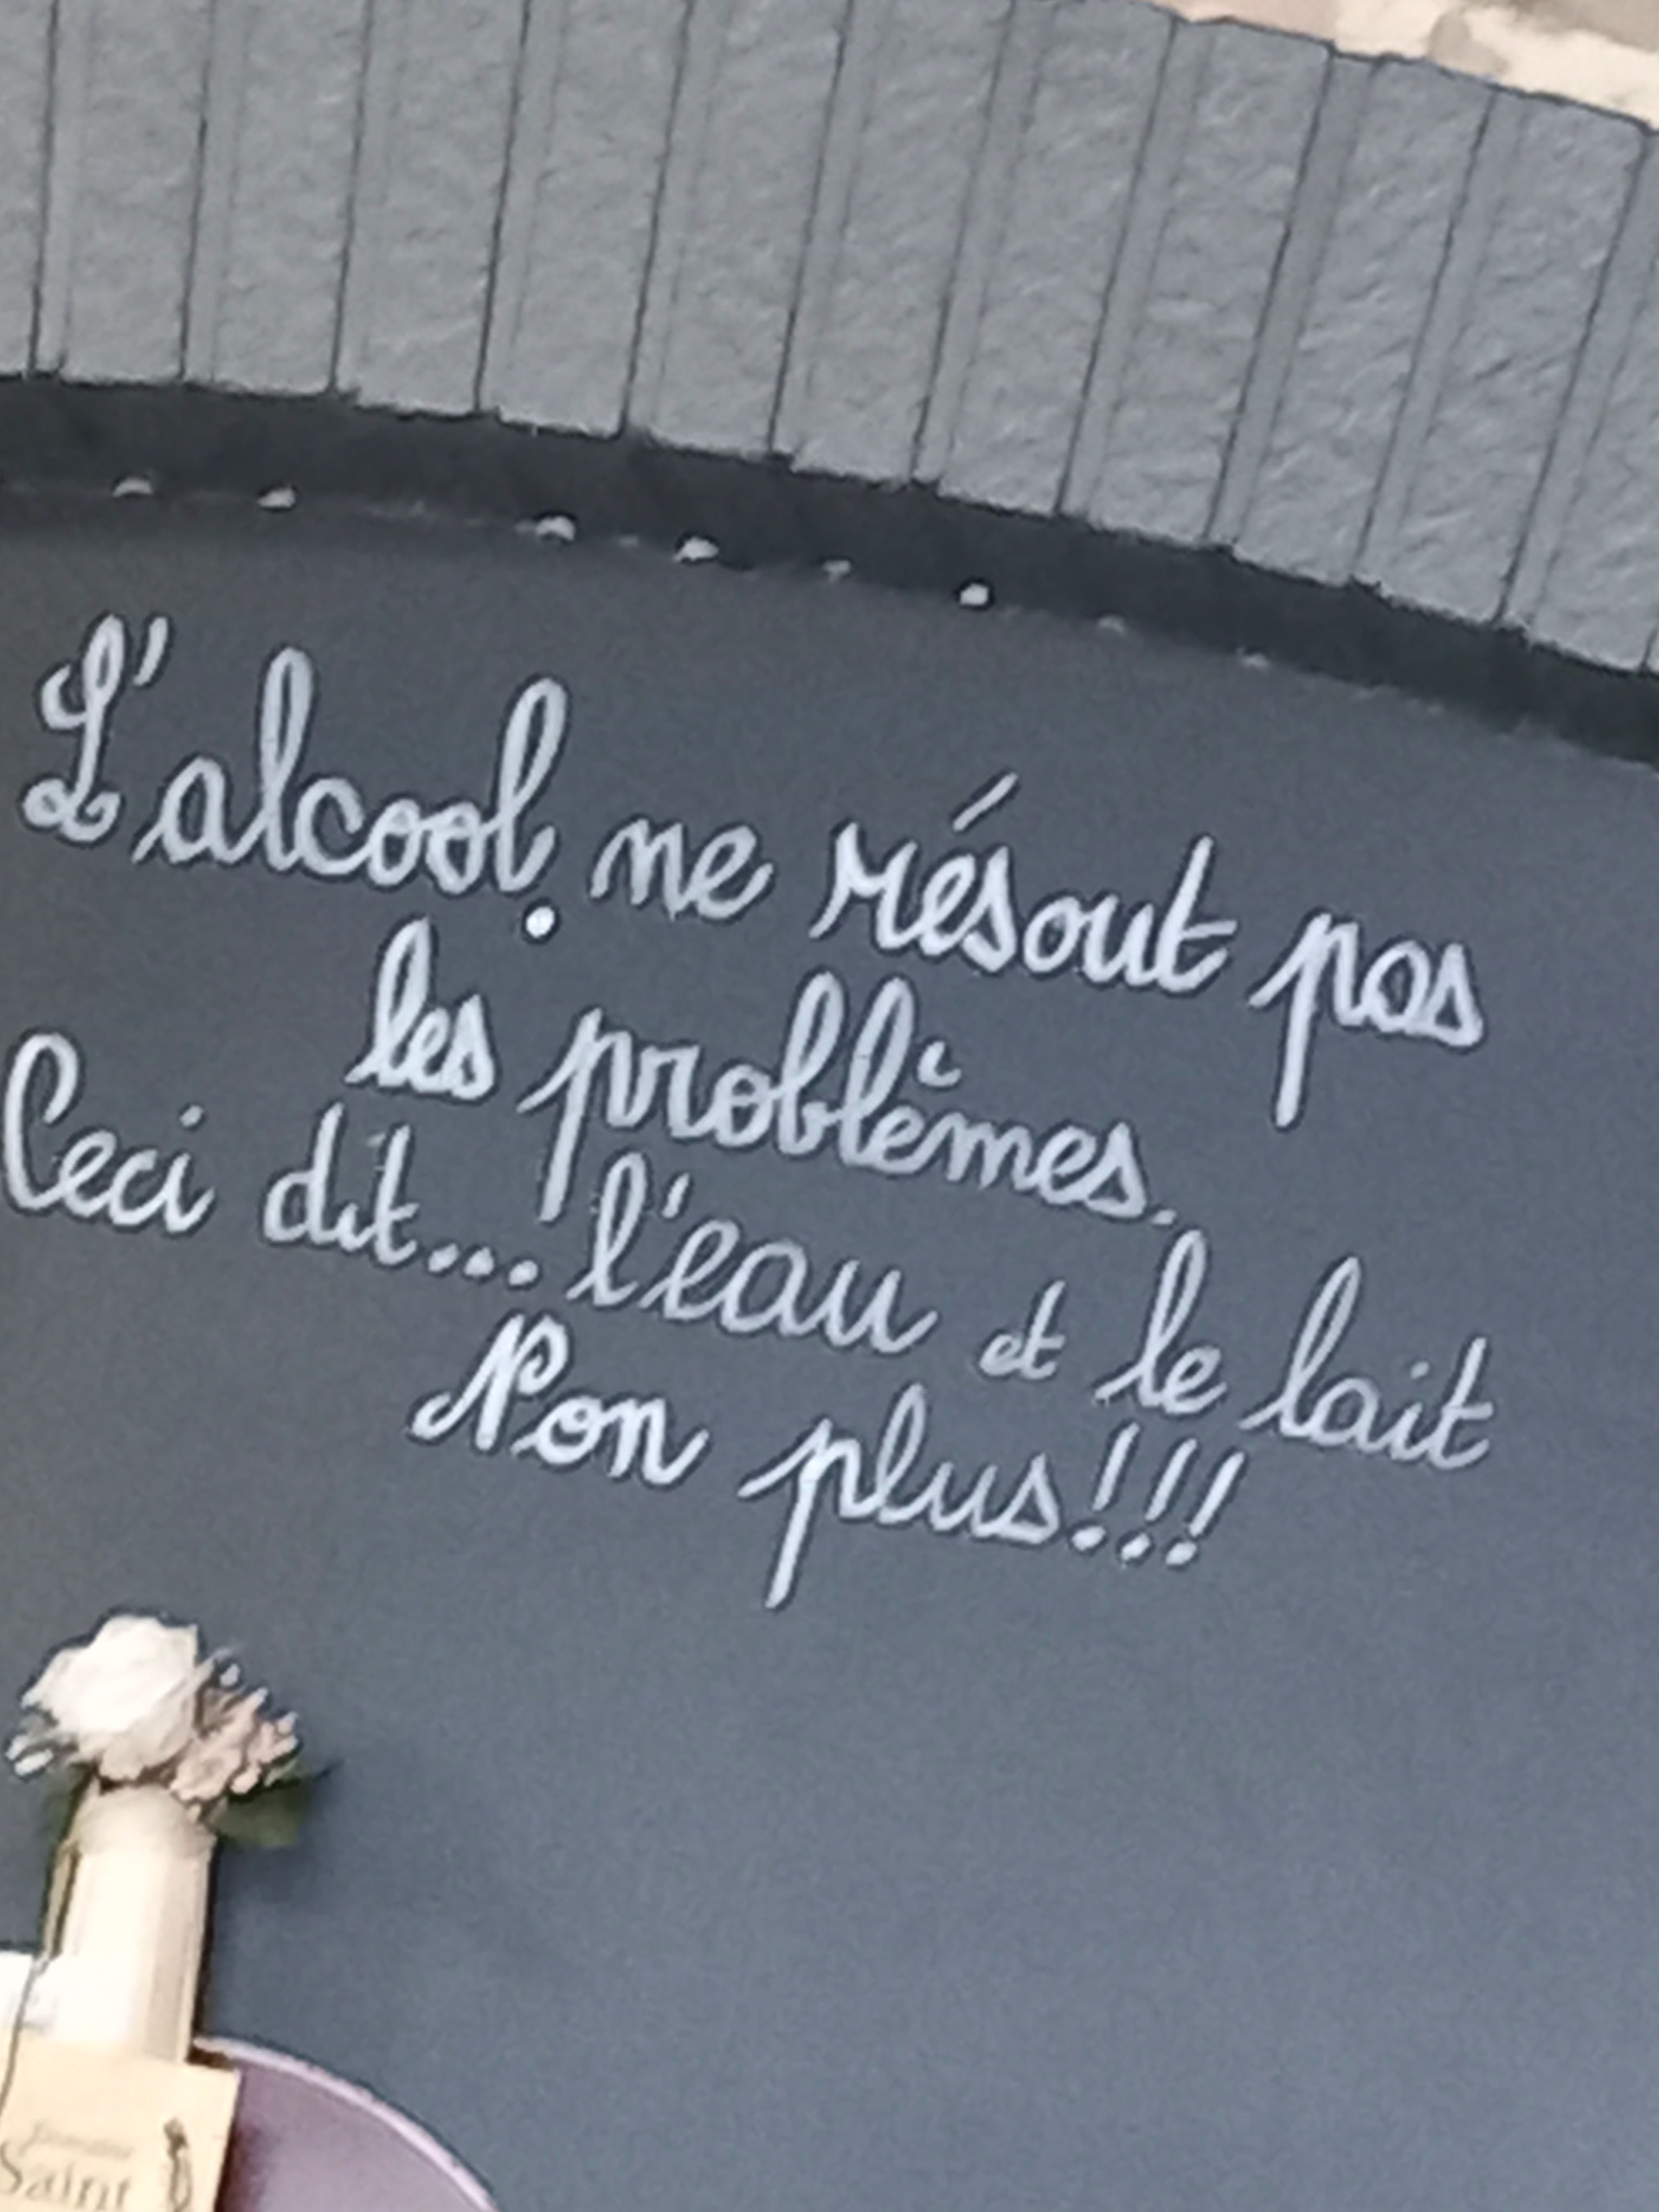 L'alcool ne résout pas
les problèmes.
Ceci dit... l'eau et le lait
Non plus!!!
Saint